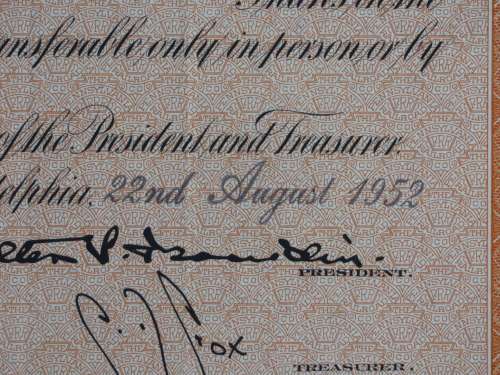 nsferable only in person or by
of the President and Treasurer.
lphia, 22nd August 1952
P. Franklin
PRESIDENT.
Fox
TREASURER.